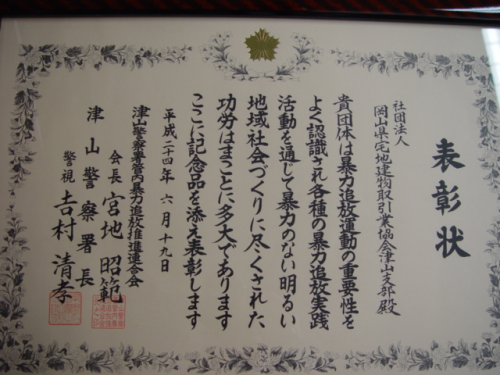 表彰状
社団法人
岡山県宅地建物取引業協会津山支部殿
貴団体は暴力追放運動の重要性を
よく認識され各種の暴力追放実践
活動を通じて暴力のない明るい
地域社会づくりに尽くされた
功労はまことに多大であります
ここに記念品を添え表彰します
平成二十四年六月十九日
津山警察署管内暴力追放推進連合会
会長 宮地昭範
津山警察署長
警視 吉村清孝